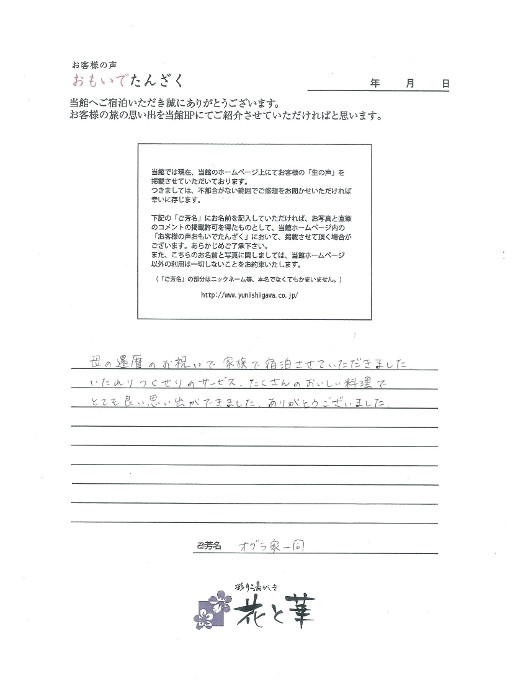 お客様の声
おもいでたんざく
年 月 日
当館へご宿泊いただき誠にありがとうございます。
お客様の旅の思い出を当館HPにてご紹介させていただければと思います。
当館では現在、当館のホームページ上にてお客様の「生の声」を
掲載させていただいております。
つきましては、不都合がない範囲でご感想をお聞かせいただければ
幸いに存じます。
下記の「ご芳名」にお名前を記入していただければ、お写真と直筆
のコメントの掲載許可を得たものとして、当館ホームページ内の
「お客様の声おもいでたんざく」において、掲載させて頂く場合が
ございます。あらかじめご了承下さい。
また、こちらのお名前と写真に関しましては、当館ホームページ
以外の利用は一切しないことをお約束いたします。
(「ご芳名」の部分はニックネーム等、本名でなくてもかまいません。)
http://www.yunishigawa.co.jp/
母の還暦のお祝いで家族で宿泊させていただきました
いたれりつくせりのサービス、たくさんのおいしい料理で
とても良い思い出ができました、ありがとうございました
ご芳名 オグラ家一同
花と華